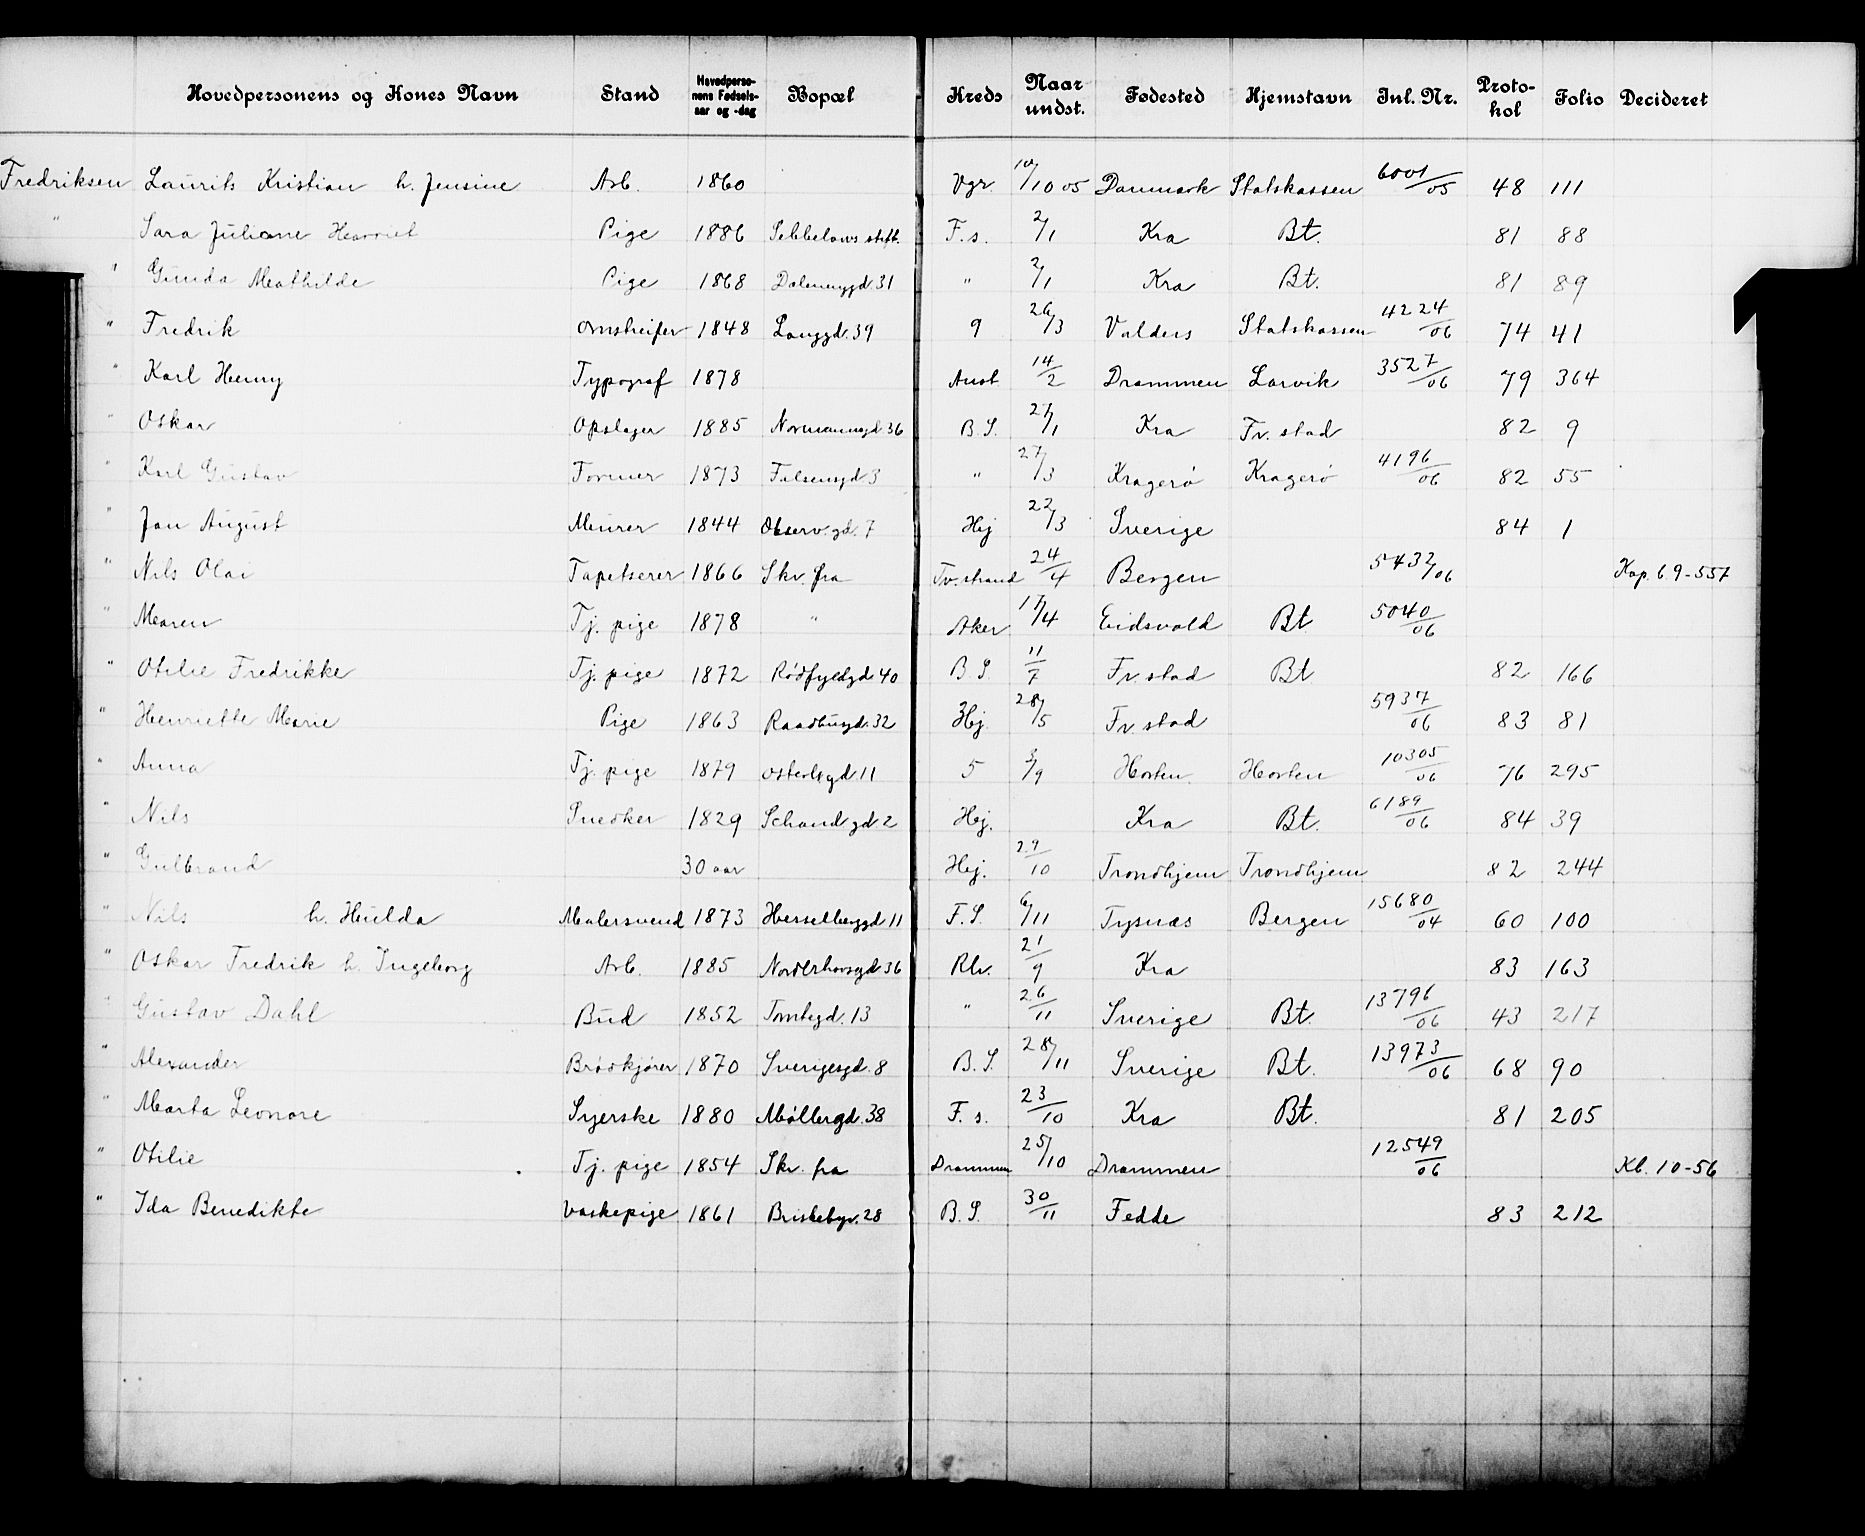 Hovedpersonens og Kones Navn Stand Hovedpersonens Fødselsaar og -dag Bopæl Kreds Naar undst. Fødested Hjemstavn Inl. Nr. Protohol Folio Decideret
Fredriksen Laurits Kristian h. Jensine Arb. 1860 Vgr. 10/10 05 Danmark Statskassen 6001/05 48 111
" Sara Juliane Harriet Pige 1886 stift. F.s. 2/1 Kra Bt. 81 88
" Gunda Mathilde Pige 1868 Dalennygd. 31 " 2/1 Kra Bt. 81 89
" Fredrik 1848 Langgd. 39 9 26/3 Valders Statskassen 4224/06 74 41
" Karl Henry Typograf 1878 Anst 14/2 Drammen Larvik 3527/06 79 364
" Oskar Opslager 1885 Normannsgd. 36 B.S. 27/1 Kra Fr. stad 82 9
" Karl Gustav Former 1873 Falsensgd 3 " 27/3 Kragerø Kragerø 4196/06 82 55
" Jan August Murer 1844 Observ. gd. 7 Hej 22/3 Sverige 84 1
" Nils Olai Tapetserer 1866 Skr. fra Tv. strand 24/4 Bergen 5432/06 Kap. 6.9-557
" Maren Tj. pige 1878 " Aker 17/4 Eidsvold Bt. 5040/06
" Otilie Fredrikke Tj. pige 1872 Rødfyldgd 40 B.S. 11/7 Fr. stad Bt 82 166
" Henriette Marie Pige 1863 Raadhusgd. 32 Hej. 28/5 Fr. stad 5937/06 83 81
" Anna Tj. pige 1879 osterhsgd. 11 5 3/9 Horten Horten 10305/06 76 295
" Nils Snedker 1829 Schand gd. 2 Hej. Kra Bt. 6189/06 84 39
" Gulbrand 30 aar Hej. 29/10 Trondhjem Trondhjem 82 244
" Nils h. Hulda Malersvend 1873 Herselbeggd 11 F.S. 6/11 Tysnæs Bergen 15680/04 60 100
" Oskar Fredrik h. Ingeborg Arb. 1885 Norderhovsgd. 36 Rlv. 21/9 Kra 83 163
" Gustav Dahl Bud 1852 Tomtegd. 13 " 26/11 Sverige Bt. 13796/06 43 217
" Alexander Brødkjører 1870 Sverigesgd. 8 B.S. 28/11 Sverige Bt. 13973/06 68 90
" Marta Leonore Syerske 1880 Møllergd. 38 F.s. 23/10 Kra Bt. 81 205
" Otilie Tj. pige 1854 Skr. fra Drammen 25/10 Drammen 12549/06 Kl. 10-56
" Ida Benedikte Vaskepige 1861 Briskebyv. 28 B.S. 30/11 Fedde 83 212